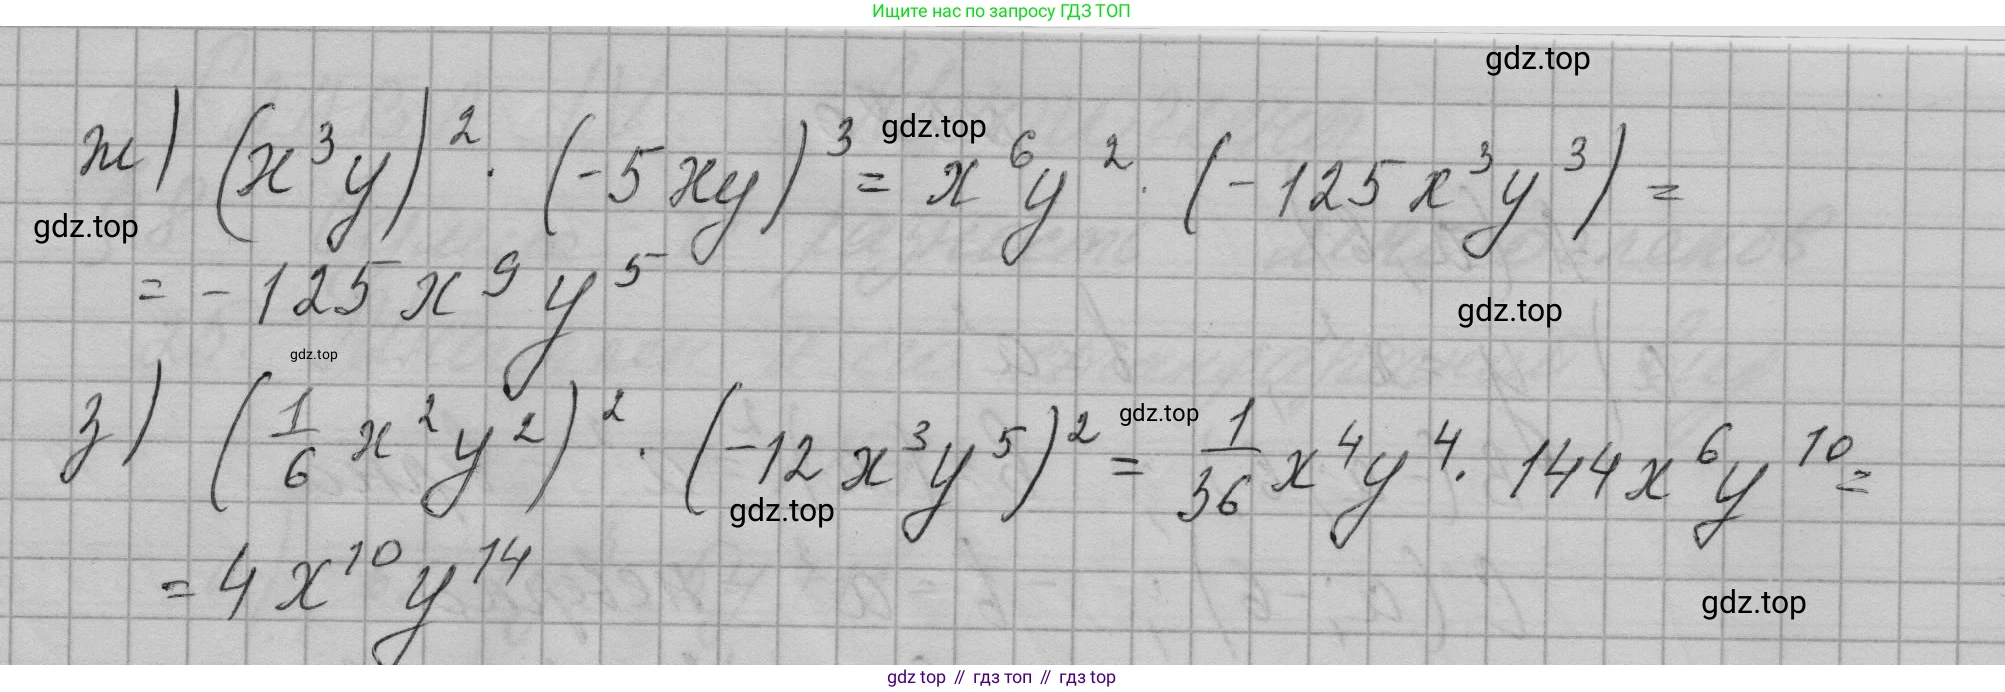 Ищите нас по запросу ГДЗ ТОП
gdz.top
ж) (x³y)² · (-5xy)³ = x⁶y² · (-125x³y³) =
gdz.top
gdz.top
= -125x⁹y⁵
gdz.top
gdz.top
з) (1/6 x²y²)² · (-12x³y⁵)² = 1/36 x⁴y⁴ · 144x⁶y¹⁰ =
gdz.top
gdz.top
= 4x¹⁰y¹⁴
gdz.top
gdz top // гдз топ // гдз top